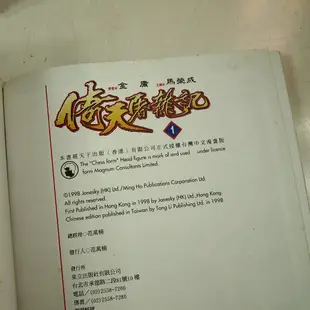 金庸 馬榮成
倚天屠龍記
1
本書經天下出版(香港)有限公司正式授權台灣中文專書版
The "Chess form" Head figure is mark of and used under licence
form Magnum Consultants Limited.
©1998 Jonesky (HK) Ltd./Ming Ho Publications Corporation Ltd.
All Rights Reserved.
First Published in Hong Kong in 1998 by Jonesky (HK) Ltd.
Chinese edition published in Taiwan by Tong Li Publishing Ltd. in 1998
總經理:范萬楠
發行人:范萬楠
發行所
東立出版社有限公司
台北市承德路二段81號10樓
電話/(02)2558-7280
傳真/(02)2558-7286